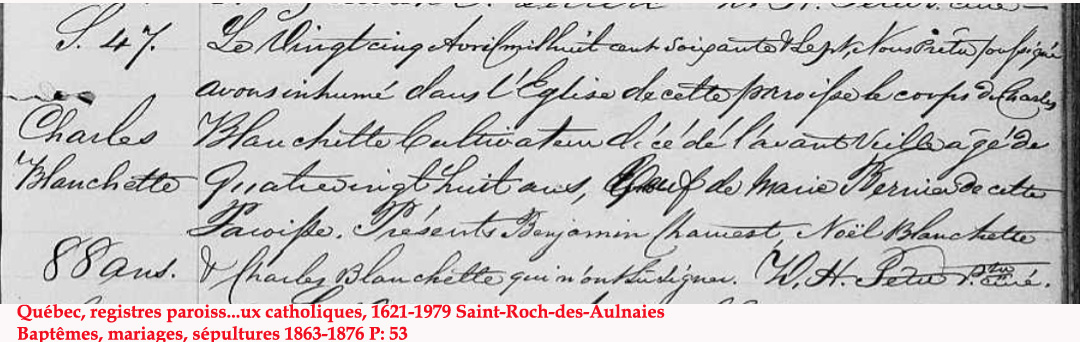 S. 47.
Le Vingt cinq Avril mil huit cent soixante & Sept, Nous Prêtre soussigné
avons inhumé dans l'Eglise de cette paroisse le corps de Charles
Charles
Blanchette Cultivateur décédé l'avant Veille agé de
Blanchette
Quatre vingt huit ans, de Marie Bernier de cette
Paroisse. Présents Benjamin Noël Blanchette
88 ans.
& Charles Blanchette qui n'ont su signer. W. H. Ptre curé.
Québec, registres paroiss...ux catholiques, 1621-1979 Saint-Roch-des-Aulnaies
Baptêmes, mariages, sépultures 1863-1876 P: 53